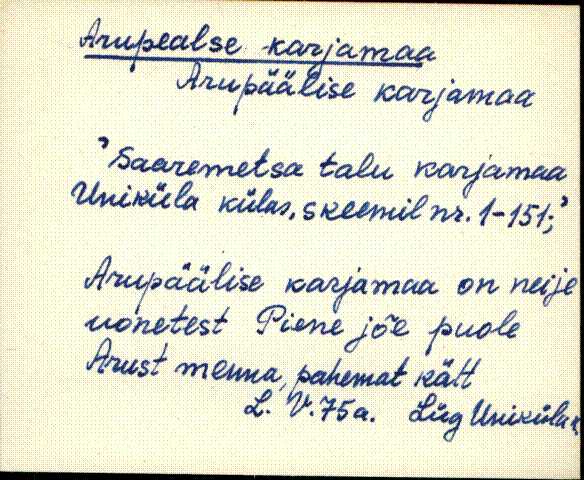 Arupealse karjamaa
Arupäälise karjamaa
"Saaremetsa talu karjamaa
Uniküla külas, skeemil nr. 1-151;"
Arupäälise karjamaa on neije
uonetest Piene jõe puole
Arust menna, pahemat kätt
L. V. 75 a. Lüg Uniküla